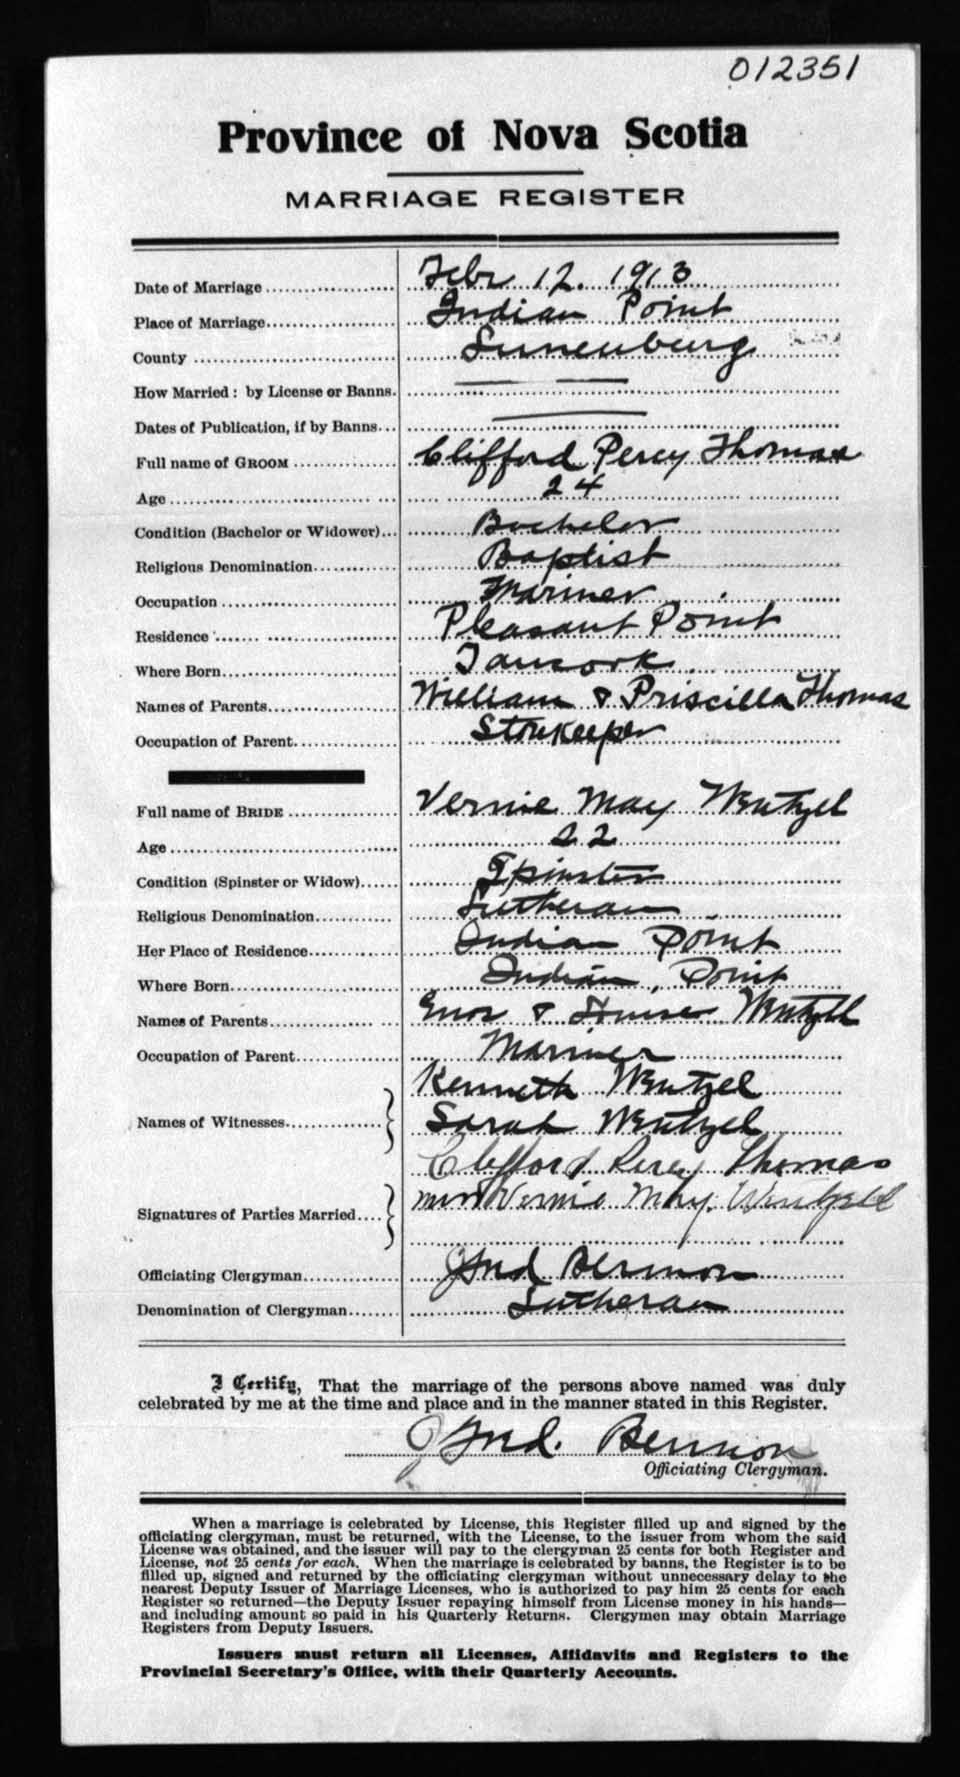 012351
Province of Nova Scotia
MARRIAGE REGISTER
Date of Marriage Febr 12. 1913
Place of Marriage Indian Point
County Lunenburg
How Married: by License or Banns.
Dates of Publication, if by Banns
Full name of GROOM Clifford Percy Thomas
Age 24
Condition (Bachelor or Widower) Bachelor
Religious Denomination Baptist
Occupation Mariner
Residence Pleasant Point
Where Born Tancook
Names of Parents William & Priscilla Thomas
Occupation of Parent Storekeeper
Full name of BRIDE Vernie May Wentzel
Age 22
Condition (Spinster or Widow) Spinster
Religious Denomination Lutheran
Her Place of Residence Indian Point
Where Born Indian Point
Names of Parents Enos & Wentzell
Occupation of Parent Mariner
Names of Witnesses Kenneth Wentzel
Sarah Wentzel
Clifford Percy Thomas
Signatures of Parties Married Vernie May Wentzell
Officiating Clergyman Bermon
Denomination of Clergyman Lutheran
I Certify, That the marriage of the persons above named was duly
celebrated by me at the time and place and in the manner stated in this Register.
Bermon
Officiating Clergyman.
When a marriage is celebrated by License, this Register filled up and signed by the
officiating clergyman, must be returned, with the License, to the issuer from whom the said
License was obtained, and the issuer will pay to the clergyman 25 cents for both Register and
License, not 25 cents for each. When the marriage is celebrated by banns, the Register is to be
filled up, signed and returned by the officiating clergyman without unnecessary delay to the
nearest Deputy Issuer of Marriage Licenses, who is authorized to pay him 25 cents for each
Register so returned—the Deputy Issuer repaying himself from License money in his hands—
and including amount so paid in his Quarterly Returns. Clergymen may obtain Marriage
Registers from Deputy Issuers.
Issuers must return all Licenses, Affidavits and Registers to the
Provincial Secretary's Office, with their Quarterly Accounts.